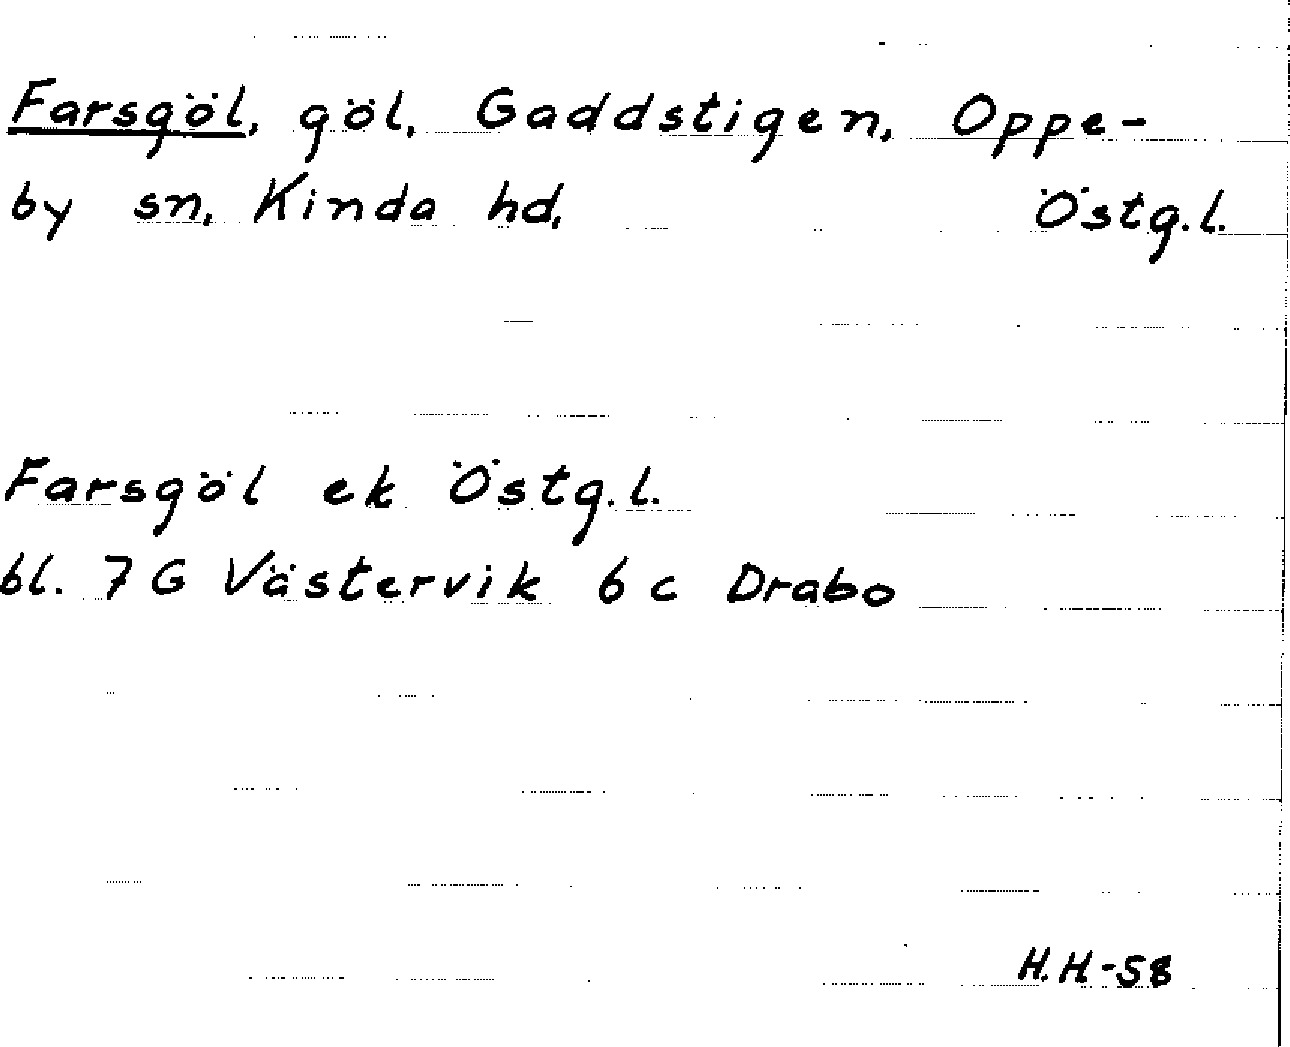 Farsgöl, göl, Gaddstigen, Oppe-
by sn, Kinda hd, Östg.l.
Farsgöl ek Östg.l.
bl. 7G Västervik 6c Drabo
H.H-58